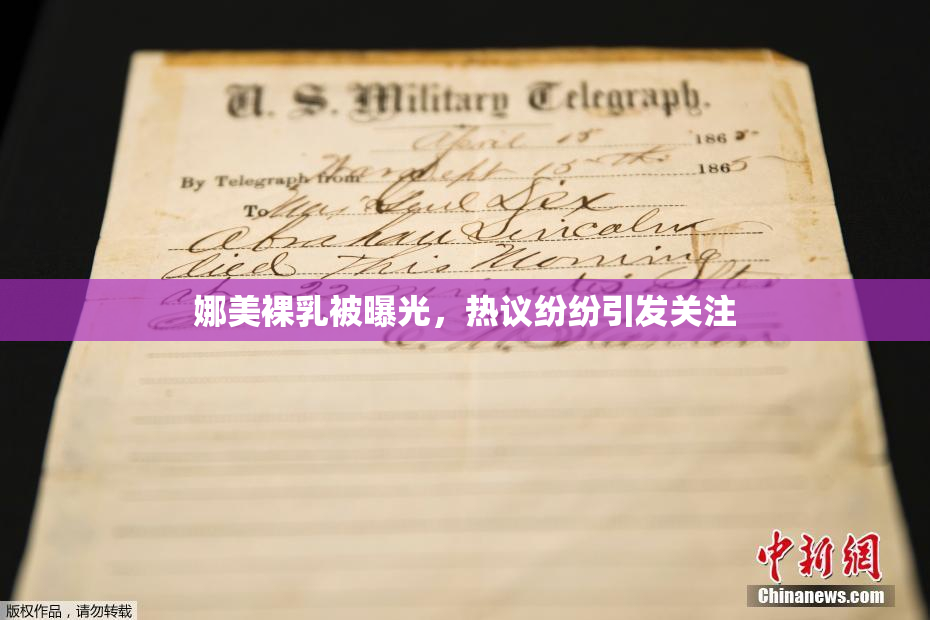 U. S. Military Telegraph.
April 15 1865
By Telegraph from War Dept 15th 1865
To Maj Genl Dix
Abraham Lincoln
died This Morning
at 22 minutes after
娜美裸乳被曝光，热议纷纷引发关注
中新网
Chinanews.com
版权作品，请勿转载